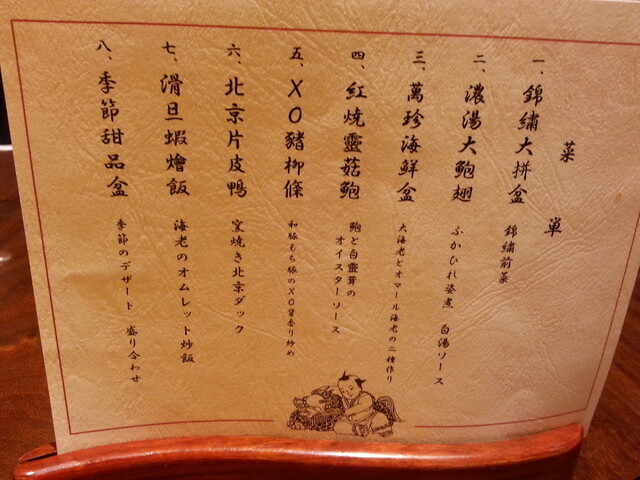 菜単
一、錦繡大拼盆
錦繡前菜
二、濃湯大鮑翅
ふかひれ姿煮 白湯ソース
三、萬珍海鮮盆
大海老とオマール海老の二種作り
四、紅焼靈菇鮑
鮑と白靈茸の
オイスターソース
五、XO豬柳條
和豚もち豚のXO醤香り炒め
六、北京片皮鴨
窯焼き北京ダック
七、滑旦蝦燴飯
海老のオムレット炒飯
八、季節甜品盆
季節のデザート 盛り合わせ